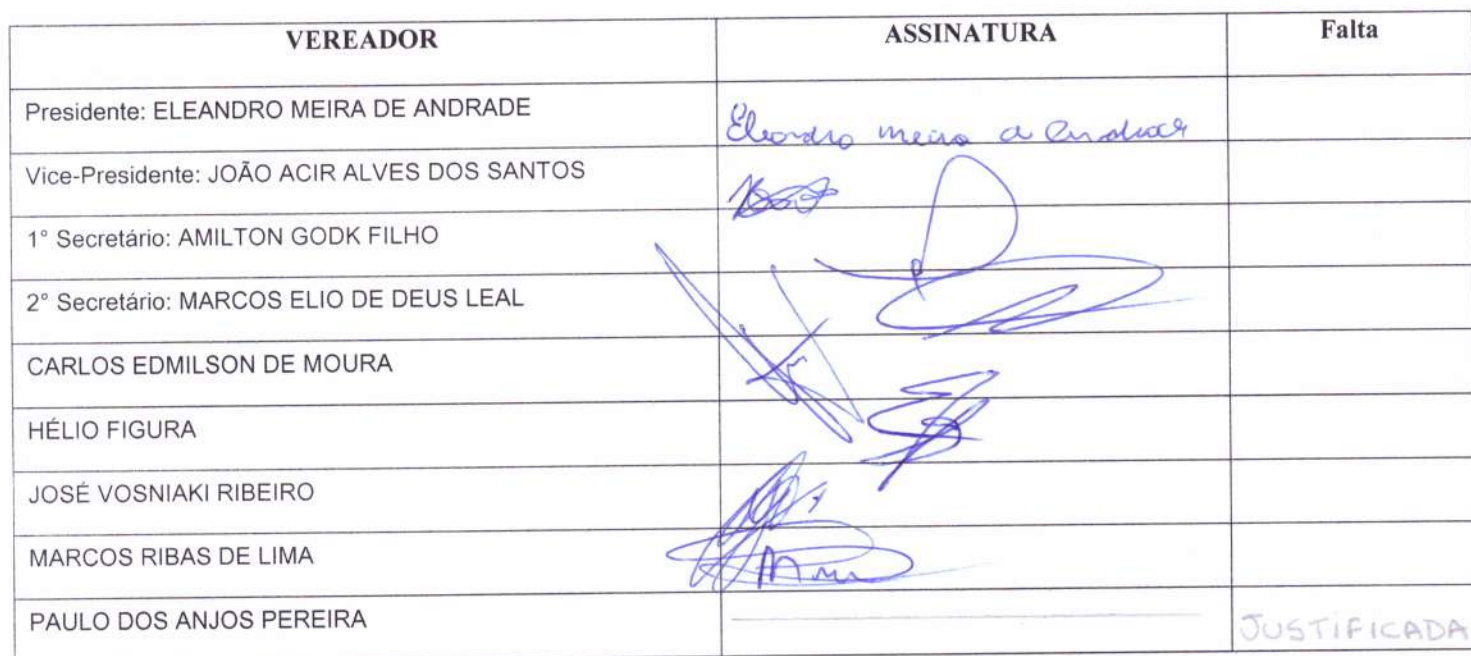 VEREADOR ASSINATURA Falta
Presidente: ELEANDRO MEIRA DE ANDRADE Eleandro Meira
Vice-Presidente: JOÃO ACIR ALVES DOS SANTOS
1° Secretário: AMILTON GODK FILHO
2° Secretário: MARCOS ELIO DE DEUS LEAL
CARLOS EDMILSON DE MOURA
HÉLIO FIGURA
JOSÉ VOSNIAKI RIBEIRO
MARCOS RIBAS DE LIMA
PAULO DOS ANJOS PEREIRA JUSTIFICADA